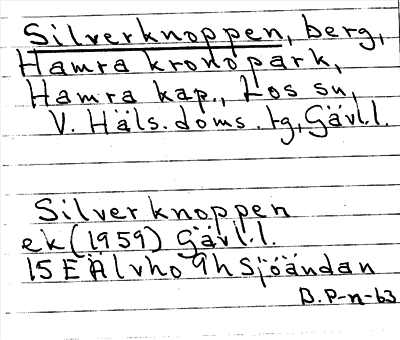 Silverknoppen, berg,
Hamra kronopark,
Hamra kap., Los sn,
V. Häls. doms. tg, Gävl.l.
Silverknoppen
ek (1959) Gävl.l.
15 E Älvho 9h Sjöändan
B. P-n-63